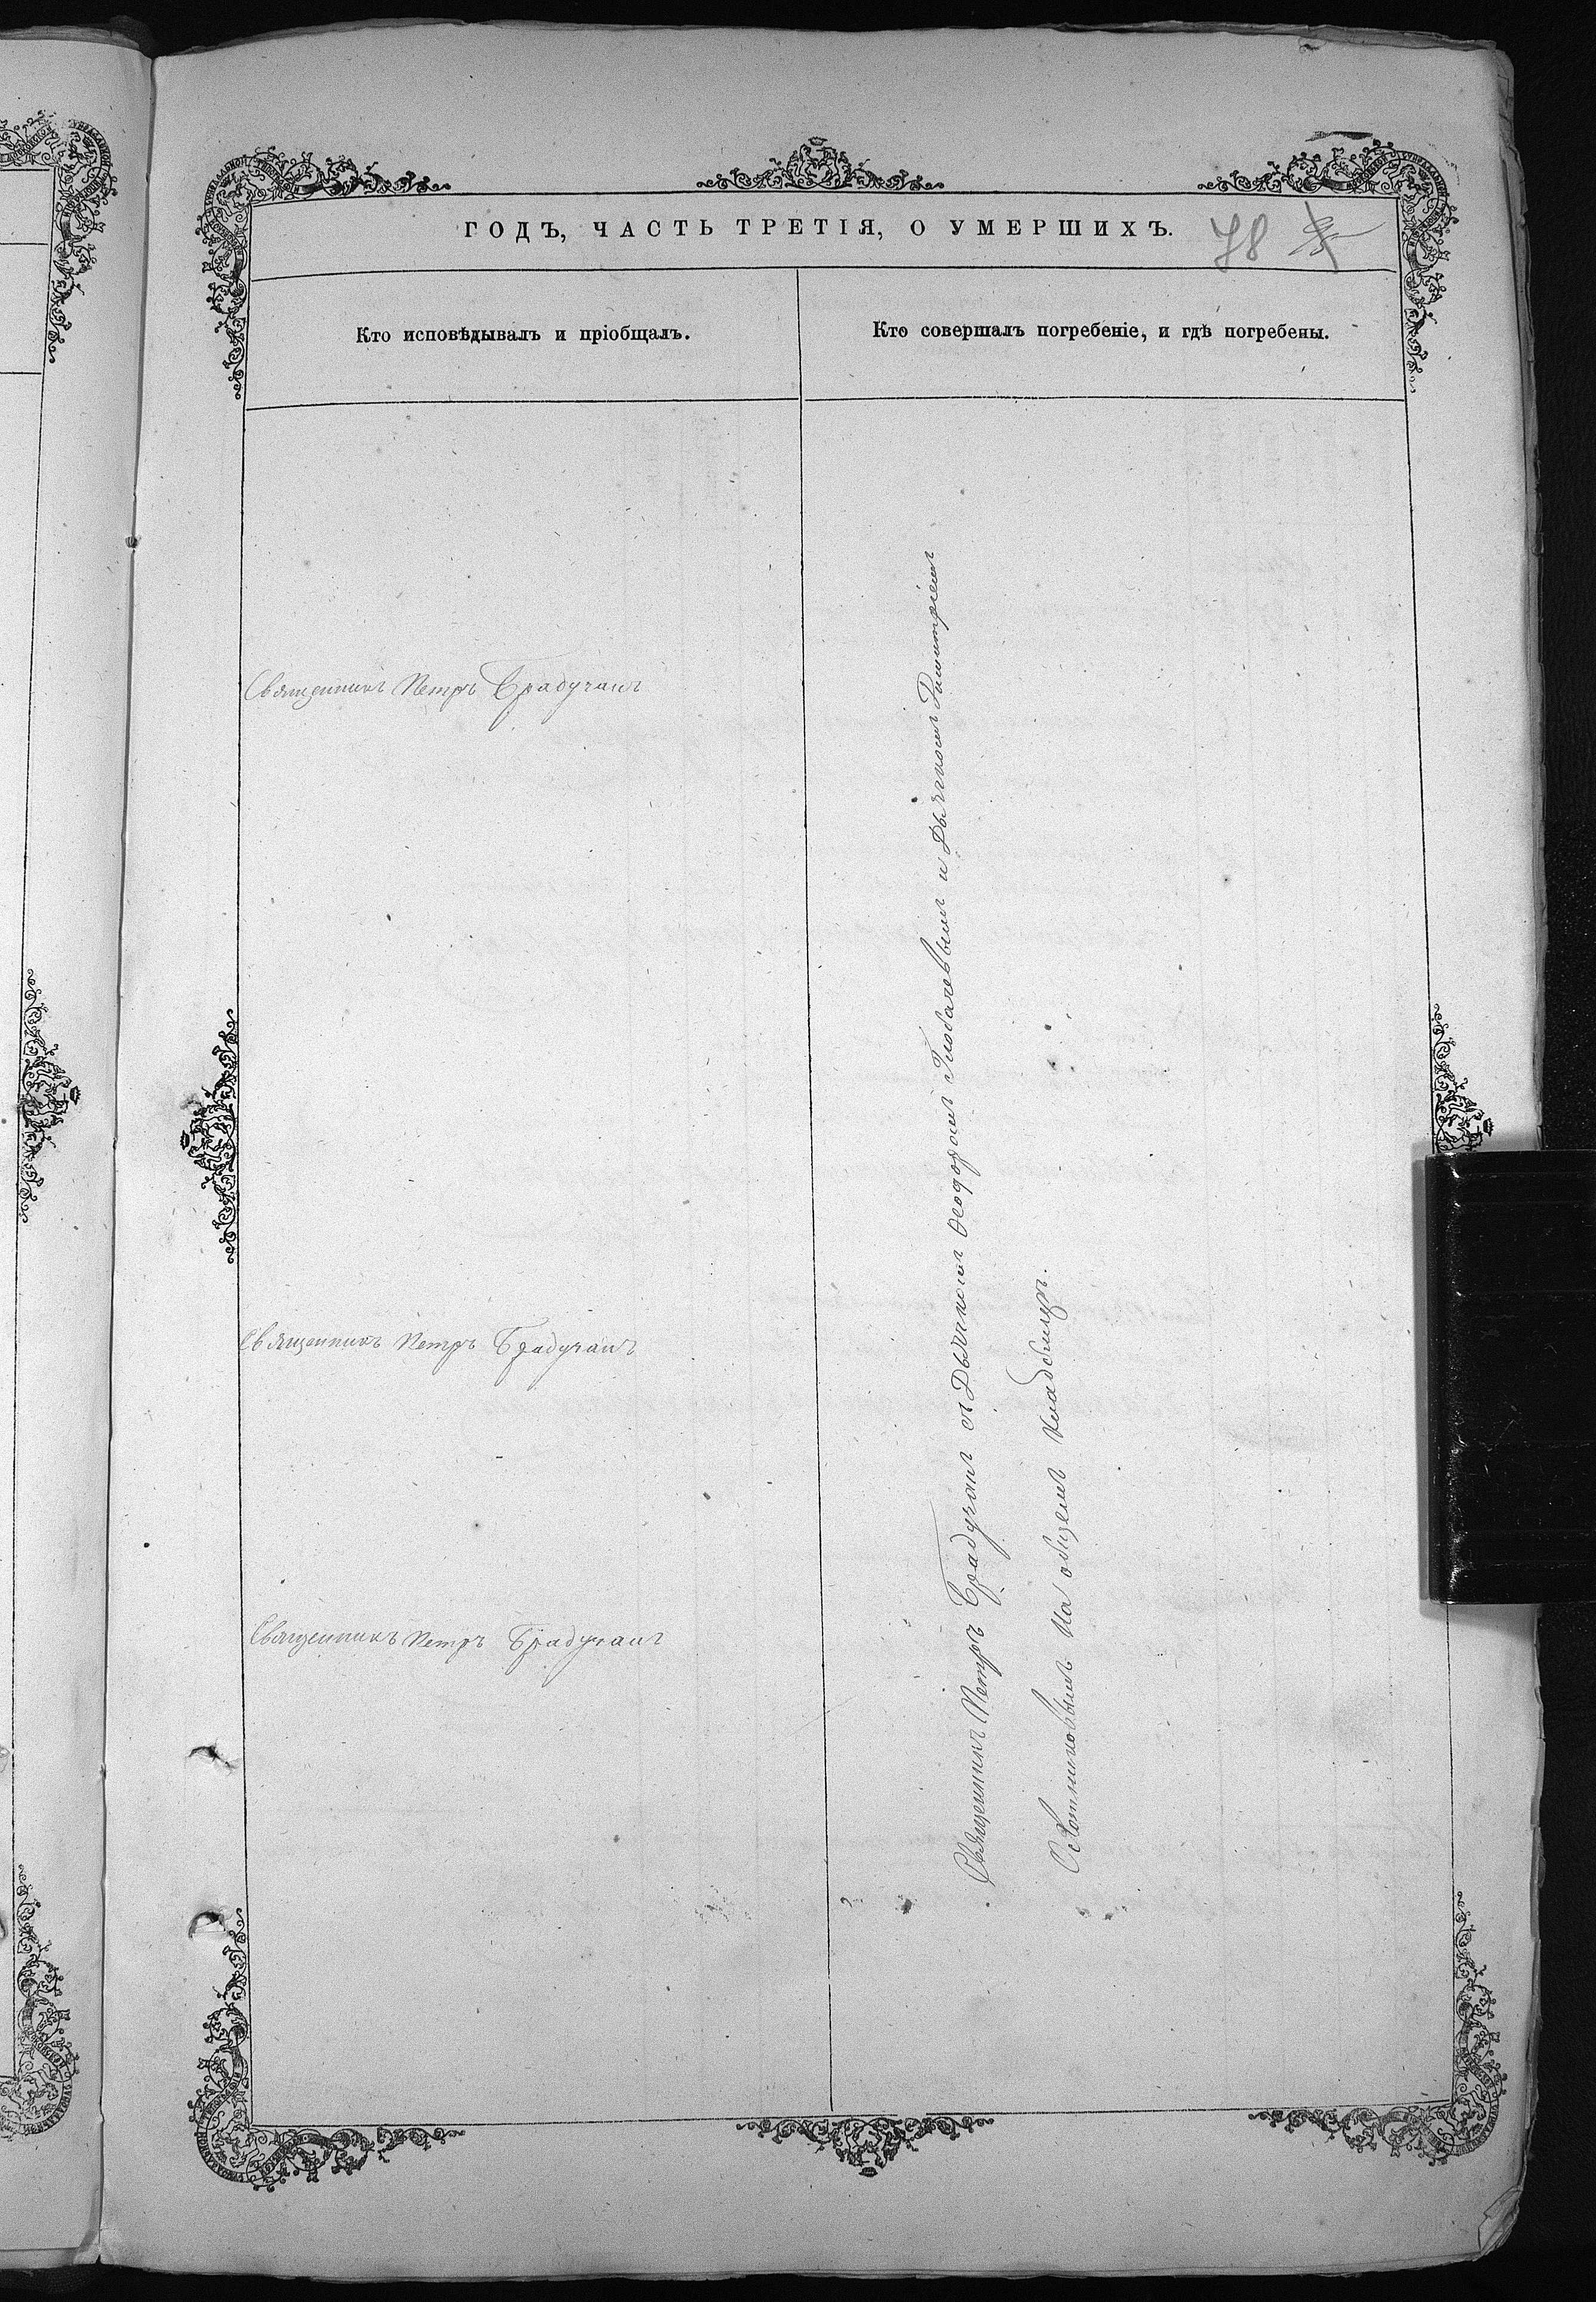 ГОДЪ, ЧАСТЬ ТРЕТІЯ, О УМЕРШИХЪ.
78
Кто исповѣдывалъ и пріобщалъ.
Кто совершалъ погребеніе, и гдѣ погребены.
Священникъ Петръ Брадучанъ
Священникъ Петръ Брадучанъ
Священникъ Петръ Брадучанъ
Священникъ Петръ Брадучанъ съ Ѳеодоромъ и Димитріемъ
на общемъ кладбищѣ.